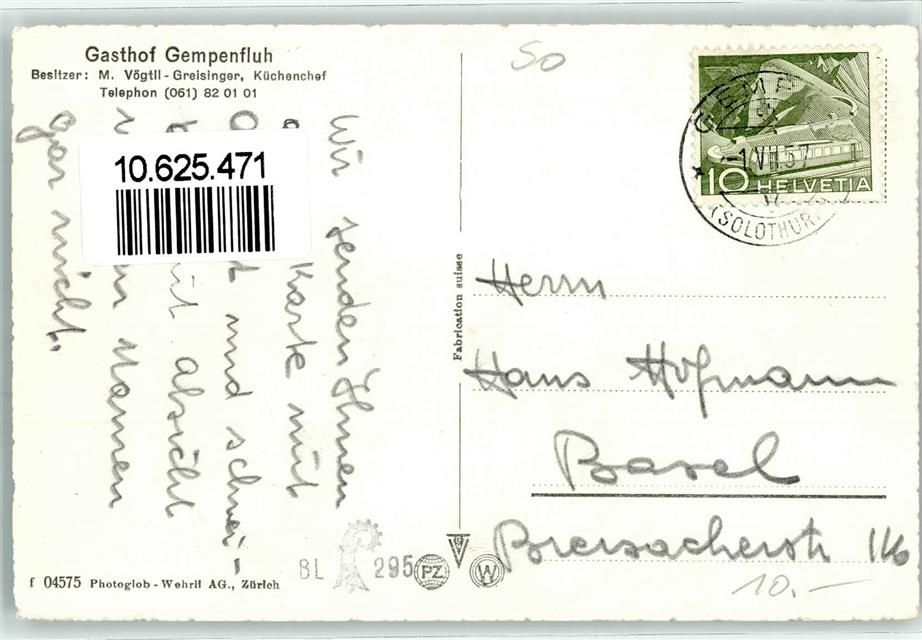 Gasthof Gempenfluh
Besitzer: M. Vögtli-Greisinger, Küchenchef
Telephon (061) 82 01 01
10.625.471
Wir senden Ihnen
Karte mit
und schrei-
absicht
Namen
gar nicht.
50
-1.VII.57
(SOLOTHURN)
10 HELVETIA
Fabrication suisse
Herrn
Hans Hofmann
Basel
Breisacherstr 116
10.-
BL 295
PZ W
f 04575 Photoglob-Wehrli AG., Zürich